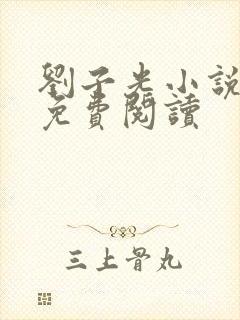 劉子光小說
免費閱讀
三上骨丸